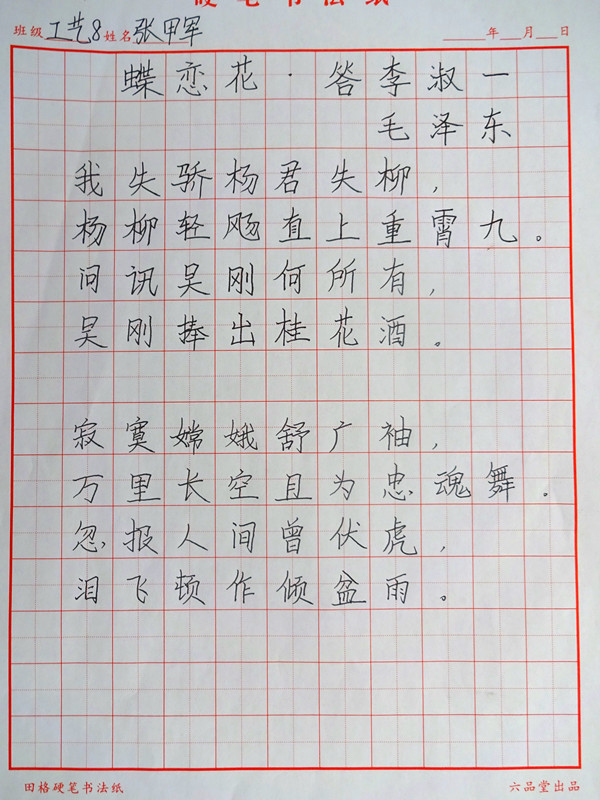 硬笔书法纸
班级 工艺8 姓名 张甲军 年 月 日
蝶恋花·答李淑一
毛泽东
我失骄杨君失柳，
杨柳轻飏直上重霄九。
问讯吴刚何所有，
吴刚捧出桂花酒。
寂寞嫦娥舒广袖，
万里长空且为忠魂舞。
忽报人间曾伏虎，
泪飞顿作倾盆雨。
田格硬笔书法纸 六品堂出品